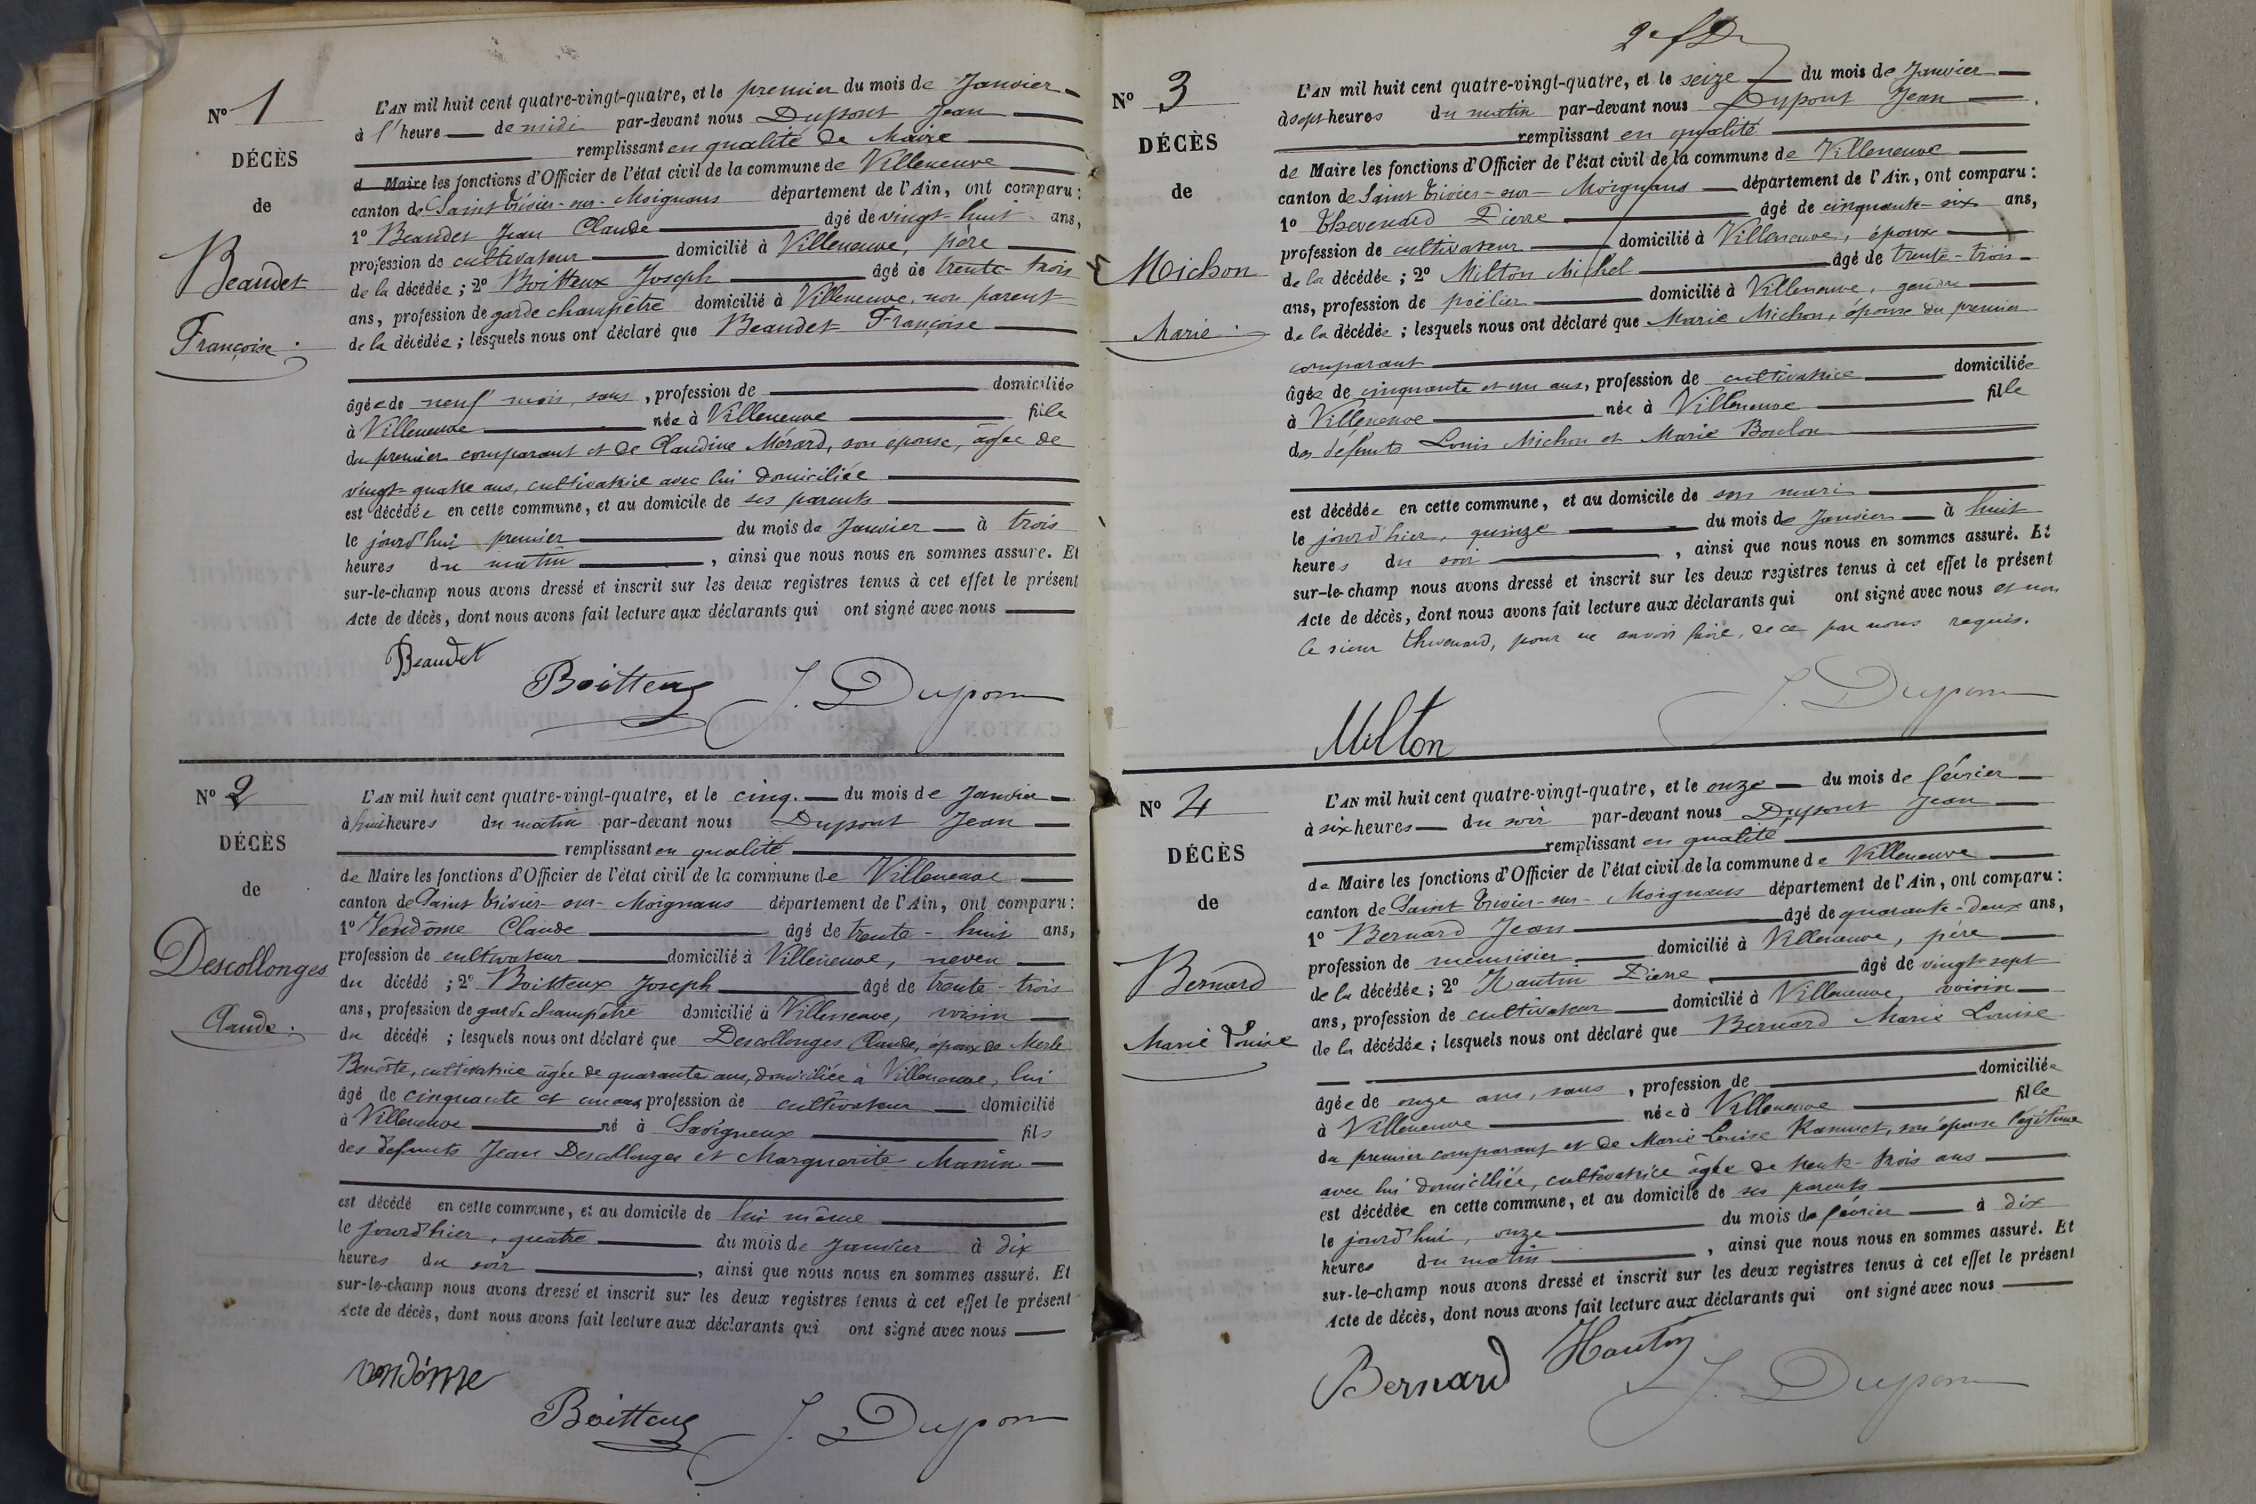 Nº 1
DÉCÈS
de
Beaudet
Françoise.
L'AN mil huit cent quatre-vingt-quatre, et le premier du mois de Janvier
à l'heure de midi par-devant nous Dupont Jean
remplissant en qualité de Maire
d Maire les fonctions d'Officier de l'état civil de la commune de Villeneuve
canton de Saint Trivier-sur-Moignans département de l'Ain, ont comparu:
1º Beaudet Jean Claude âgé de vingt-huit ans,
profession de cultivateur domicilié à Villeneuve, père
de la décédée; 2º Boitteux Joseph âgé de trente-trois
ans, profession de garde champêtre domicilié à Villeneuve, non parent
de la décédée; lesquels nous ont déclaré que Beaudet Françoise
âgée de neuf mois, sans, profession de domiciliée
à Villeneuve née à Villeneuve fille
du premier comparant et de Claudine Mérard, son épouse, âgée de
vingt-quatre ans, cultivatrice avec lui domiciliée
est décédée en cette commune, et au domicile de ses parents
le jourd'hui premier du mois de Janvier à trois
heures du matin, ainsi que nous nous en sommes assuré. Et
sur-le-champ nous avons dressé et inscrit sur les deux registres tenus à cet effet le présent
Acte de décès, dont nous avons fait lecture aux déclarants qui ont signé avec nous
Beaudet
Boitteux J. Dupont
Nº 2
DÉCÈS
de
Descollonges
Claude.
L'AN mil huit cent quatre-vingt-quatre, et le cinq. du mois de Janvier
à huit heures du matin par-devant nous Dupont Jean
remplissant en qualité
de Maire les fonctions d'Officier de l'état civil de la commune de Villeneuve
canton de Saint Trivier-sur-Moignans département de l'Ain, ont comparu:
1º Vendôme Claude âgé de trente-huit ans,
profession de cultivateur domicilié à Villeneuve, neveu
du décédé; 2º Boitteux Joseph âgé de trente-trois
ans, profession de garde champêtre domicilié à Villeneuve, voisin
du décédé; lesquels nous ont déclaré que Descollonges Claude, époux de Merle
Benoîte, cultivatrice âgée de quarante ans, domiciliée à Villeneuve, lui
âgé de cinquante et un ans, profession de cultivateur domicilié
à Villeneuve né à Savigneux fils
des défunts Jean Descollonges et Marguerite Manin
est décédé en cette commune, et au domicile de lui même
le jourd'hier, quatre du mois de Janvier à dix
heures du soir, ainsi que nous nous en sommes assuré. Et
sur-le-champ nous avons dressé et inscrit sur les deux registres tenus à cet effet le présent
Acte de décès, dont nous avons fait lecture aux déclarants qui ont signé avec nous
Vendôme
Boitteux J. Dupont
Nº 3
DÉCÈS
de
Michon
Marie.
L'AN mil huit cent quatre-vingt-quatre, et le seize du mois de Janvier
à sept heures du matin par-devant nous Dupont Jean
remplissant en qualité
de Maire les fonctions d'Officier de l'état civil de la commune de Villeneuve
canton de Saint Trivier-sur-Moignans département de l'Ain, ont comparu:
1º Thevenard Pierre âgé de cinquante-six ans,
profession de cultivateur domicilié à Villeneuve, époux
de la décédée; 2º Milton Michel âgé de trente-trois
ans, profession de poëlier domicilié à Villeneuve, gendre
de la décédée; lesquels nous ont déclaré que Marie Michon, épouse du premier
comparant
âgée de cinquante et un ans, profession de cultivatrice domiciliée
à Villeneuve née à Villeneuve fille
des défunts Louis Michon et Marie Boulon
est décédée en cette commune, et au domicile de son mari
le jourd'hier, quinze du mois de Janvier à huit
heures du soir, ainsi que nous nous en sommes assuré. Et
sur-le-champ nous avons dressé et inscrit sur les deux registres tenus à cet effet le présent
Acte de décès, dont nous avons fait lecture aux déclarants qui ont signé avec nous et non
le sieur Thevenard, pour ne savoir faire, de ce par nous requis.
Milton J. Dupont
Nº 4
DÉCÈS
de
Bernard
Marie Louise
L'AN mil huit cent quatre-vingt-quatre, et le onze du mois de février
à six heures du soir par-devant nous Dupont Jean
remplissant en qualité
de Maire les fonctions d'Officier de l'état civil de la commune de Villeneuve
canton de Saint Trivier-sur-Moignans département de l'Ain, ont comparu:
1º Bernard Jean âgé de quarante-deux ans,
profession de menuisier domicilié à Villeneuve, père
de la décédée; 2º Hautin Pierre âgé de vingt-sept
ans, profession de cultivateur domicilié à Villeneuve voisin
de la décédée; lesquels nous ont déclaré que Bernard Marie Louise
âgée de onze ans, sans, profession de domiciliée
à Villeneuve née à Villeneuve fille
du premier comparant et de Marie Louise son épouse légitime
avec lui domiciliée, cultivatrice âgée de trente-trois ans
est décédée en cette commune, et au domicile de ses parents
le jourd'hui, onze du mois de février à dix
heures du matin, ainsi que nous nous en sommes assuré. Et
sur-le-champ nous avons dressé et inscrit sur les deux registres tenus à cet effet le présent
Acte de décès, dont nous avons fait lecture aux déclarants qui ont signé avec nous
Bernard Hautin J. Dupont